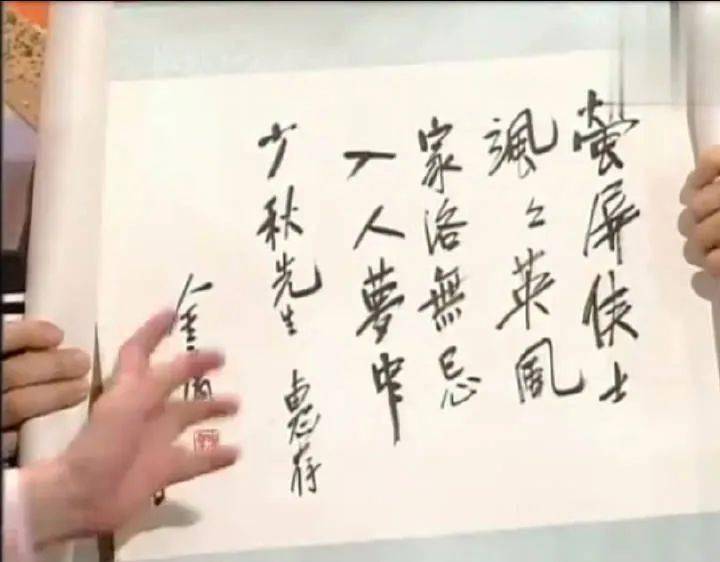 螢屏侠士
颯々英風
家洛無忌
入人夢中
少秋先生 惠存
金庸